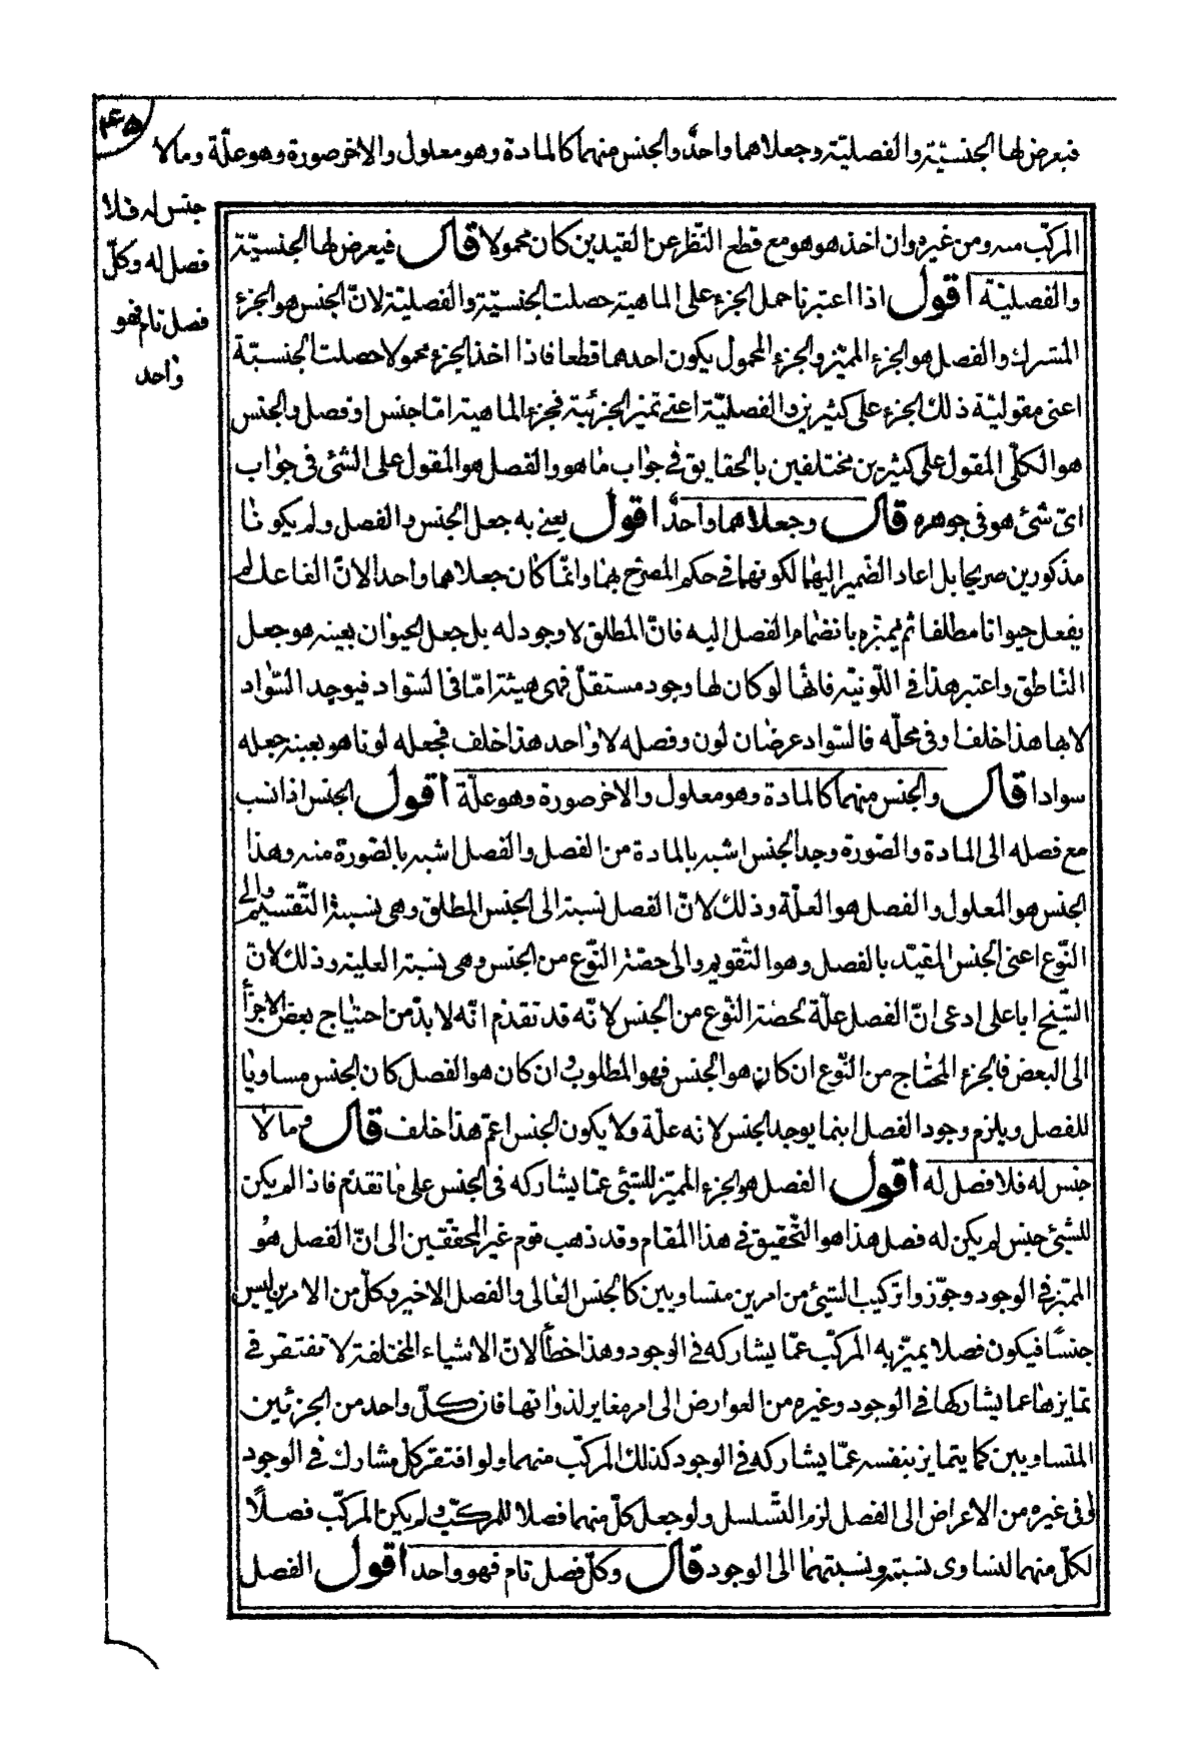 فيعرض لها الجنسيّة والفصليّة وجعلاهما واحدًا والجنس منهما كالمادة وهو معلول والاخر صورة وهو علّة وما لا
جنس له فلا
فصل له وكلّ
فصل تام فهو
واحد
المركّب منه ومن غيره وان اخذ هو هو مع قطع النّظر عن القيدين كان محمولا قال فيعرض لها الجنسيّة
والفصليّة اقول اذا اعتبرنا حمل الجزء على الماهية حصلت الجنسيّة والفصليّة لانّ الجنس هو الجزء
المشترك والفصل هو الجزء المميّز والجزء المحمول يكون احدهما قطعا فاذا اخذ الجزء محمولا حصلت الجنسيّة
اعنى مقوليّة ذلك الجزء على كثيرين والفصليّة اعنى تميز الجزئية فجزء الماهية امّا جنس او فصل والجنس
هو الكلّى المقول على كثيرين مختلفين بالحقايق فى جواب ما هو والفصل هو المقول على الشئ فى جواب
اىّ شئ هو فى جوهره قال وجعلاهما واحدًا اقول يعنى به جعل الجنس والفصل ولم يكونا
مذكورين صريحا بل اعاد الضّمير اليهما لكونهما فى حكم المصرّح بهما وانّما كان جعلاهما واحدا لانّ الفاعل لم
يفعل حيوانا مطلقا ثم يميّزه بانضمام الفصل اليه فانّ المطلق لا وجود له بل جعل الحيوان بعينه هو جعل
النّاطق واعتبر هذا فى اللّونيّة فانّها لو كان لها وجود مستقلّ فهى هيئة امّا فى السّواد فيوجد السّواد
لا بها هذا خلف او فى محلّه فالسّواد عرضان لون وفصله لا واحد هذا خلف فجعله لونا هو بعينه جعله
سوادا قال والجنس منهما كالمادة وهو معلول والاخر صورة وهو علّة اقول الجنس اذا نسب
مع فصله الى المادة والصّورة وجد الجنس اشبه بالمادة من الفصل والفصل اشبه بالصّورة منه وهذا
الجنس هو المعلول والفصل هو العلّة وذلك لانّ الفصل نسبة الى الجنس المطلق وهى نسبة التّقسيم والى
النّوع اعنى الجنس المقيّد بالفصل وهو التّقويم والى حصّة النّوع من الجنس وهى نسبة العلية وذلك لانّ
الشّيخ ابا على ادعى انّ الفصل علّة لحصّة النّوع من الجنس لانّه قد تقدّم انّه لا بدّ من احتياج بعض الاجزاء
الى البعض فالجزء المحتاج من النّوع ان كان هو الجنس فهو المطلوب وان كان هو الفصل كان الجنس مساويا
للفصل ويلزم وجود الفصل اينما يوجد الجنس لانه علّة ولا يكون الجنس اعمّ هذا خلف قال وما لا
جنس له فلا فصل له اقول الفصل هو الجزء المميّز للشئ عمّا يشاركه فى الجنس على ما تقدّم فاذا لم يكن
للشئ جنس لم يكن له فصل هذا هو التّحقيق فى هذا المقام وقد ذهب قوم غير المحقّقين الى انّ الفصل هو
المميّز فى الوجود وجوّزوا تركيب الشئ من امرين متساويين كالجنس العالى والفصل الاخير وكلّ من الامرين ليس
جنسًا فيكون فصلا يميّز به المركّب عمّا يشاركه فى الوجود وهذا خطأ لانّ الاشياء المختلفة لا تفتقر فى
تمايزها عما يشاركها فى الوجود وغيره من العوارض الى امر مغاير لذواتها فان كلّ واحد من الجزئين
المتساويين كما يتمايز بنفسه عمّا يشاركه فى الوجود كذلك المركّب منهما ولو افتقر كلّ مشارك فى الوجود
او فى غيره من الاعراض الى الفصل لزم التّسلسل ولو جعل كلّ منهما فصلا للمركّب ولم يكن المركّب فصلًا
لكلّ منهما لتساوى نسبته ونسبتهما الى الوجود قال وكلّ فصل تام فهو واحد اقول الفصل